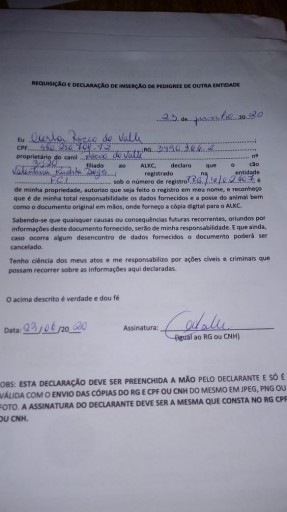 REQUISIÇÃO E DECLARAÇÃO DE INSERÇÃO DE PEDIGREE DE OUTRA ENTIDADE
23 de junho 20 20
Eu Rocco do Valle
CPF RG
proprietário do canil Rocco do Valle nº
filiado ao ALKC, declaro que o cão
registrado na entidade
FCI sob o número de registro é
de minha propriedade, autorizo que seja feito o registro em meu nome, e reconheço
que é de minha total responsabilidade os dados fornecidos e a posse do animal bem
como o documento original em mãos, onde forneço a cópia digital para o ALKC.
Sabendo-se que quaisquer causas ou consequências futuras recorrentes, oriundos por
informações deste documento fornecido, serão de minha responsabilidade. E que ainda,
caso ocorra algum desencontro de dados fornecidos o documento poderá ser
cancelado.
Tenho ciência dos meus atos e me responsabilizo por ações cíveis e criminais que
possam recorrer as informações aqui declaradas.
O acima descrito é verdade e dou fé
Data: 23/06/20 20 Assinatura:
(Igual ao RG ou CNH)
OBS: ESTA DECLARAÇÃO DEVE SER PREENCHIDA A MÃO PELO DECLARANTE E SÓ É
VÁLIDA COM O ENVIO DAS CÓPIAS DO RG E CPF OU CNH DO MESMO EM JPEG, PNG OU
FOTO. A ASSINATURA DO DECLARANTE DEVE SER A MESMA QUE CONSTA NO RG CPF
OU CNH.